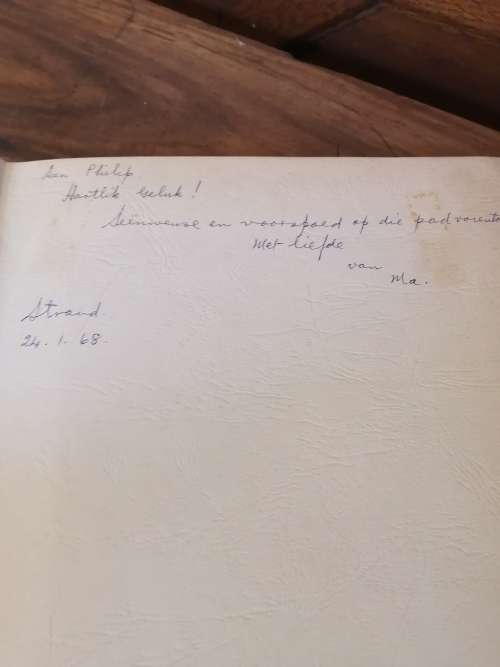 Aan Philip
Hartlik Geluk!
Seënwense en voorspoed op die pad vorentoe
Met liefde
van
Ma.
Strand.
24. 1. 68.